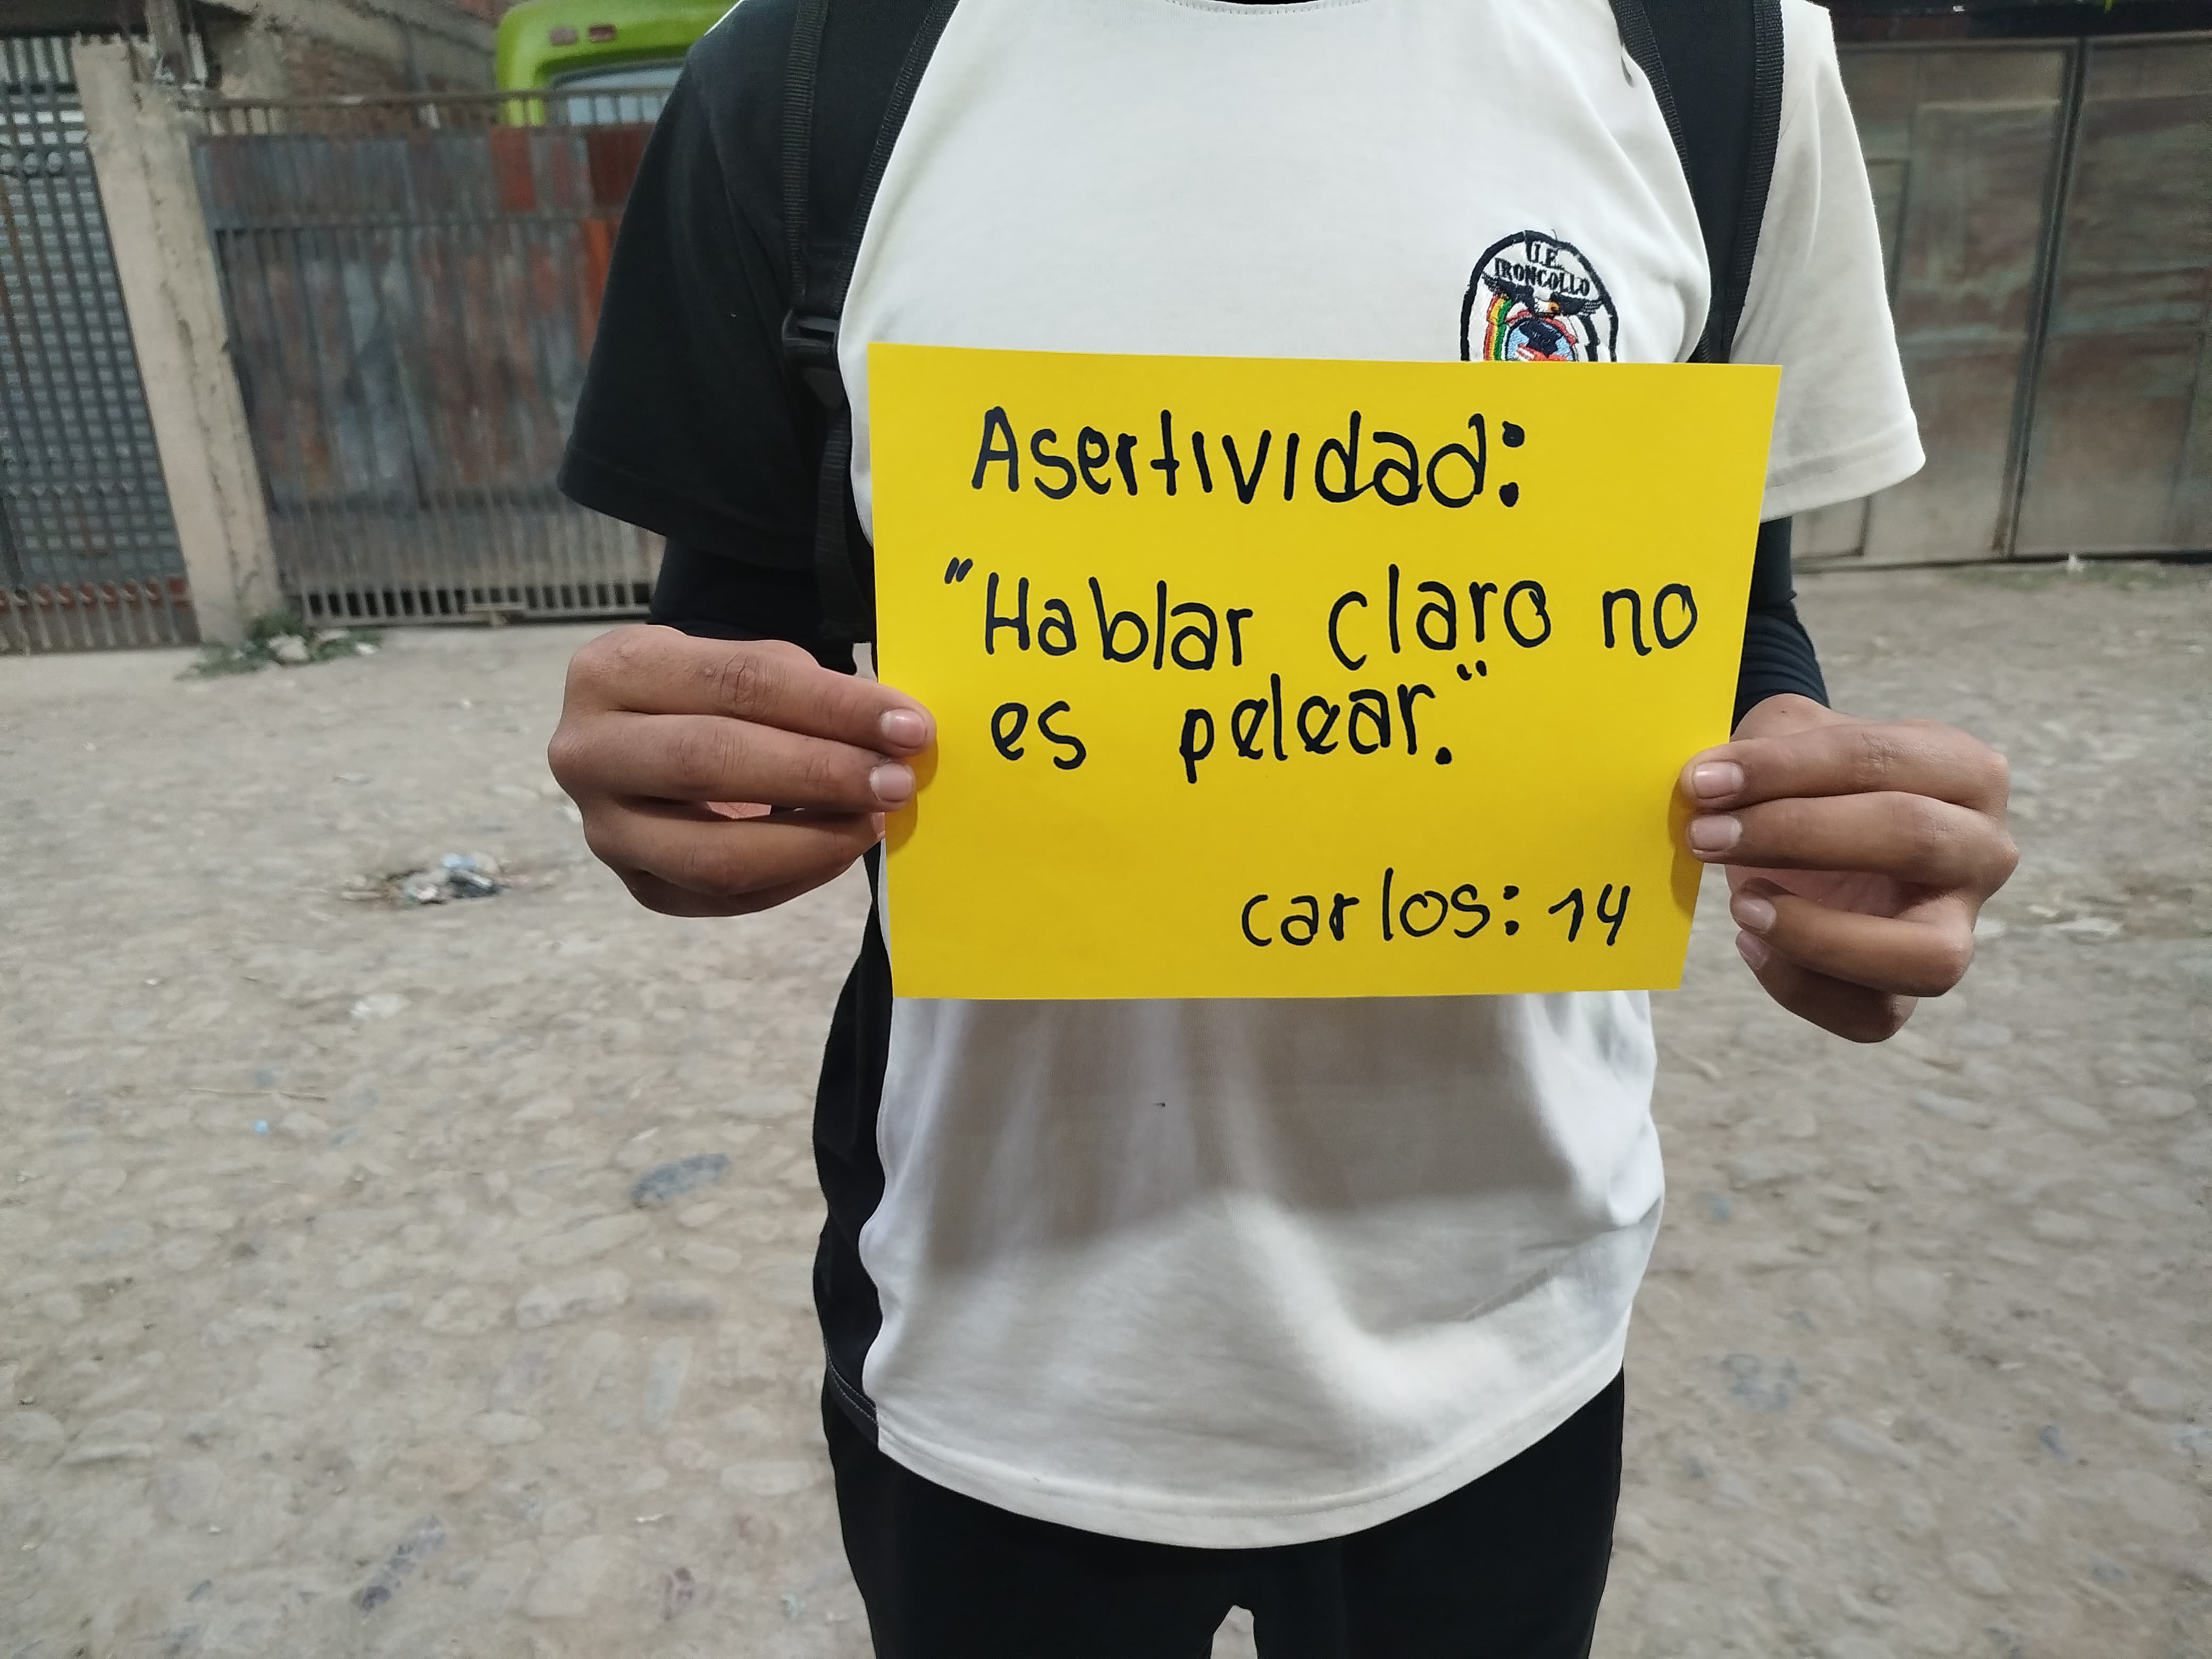 U.E.
IRONCOLLO
Asertividad:
"Hablar claro no
es pelear."
carlos: 14